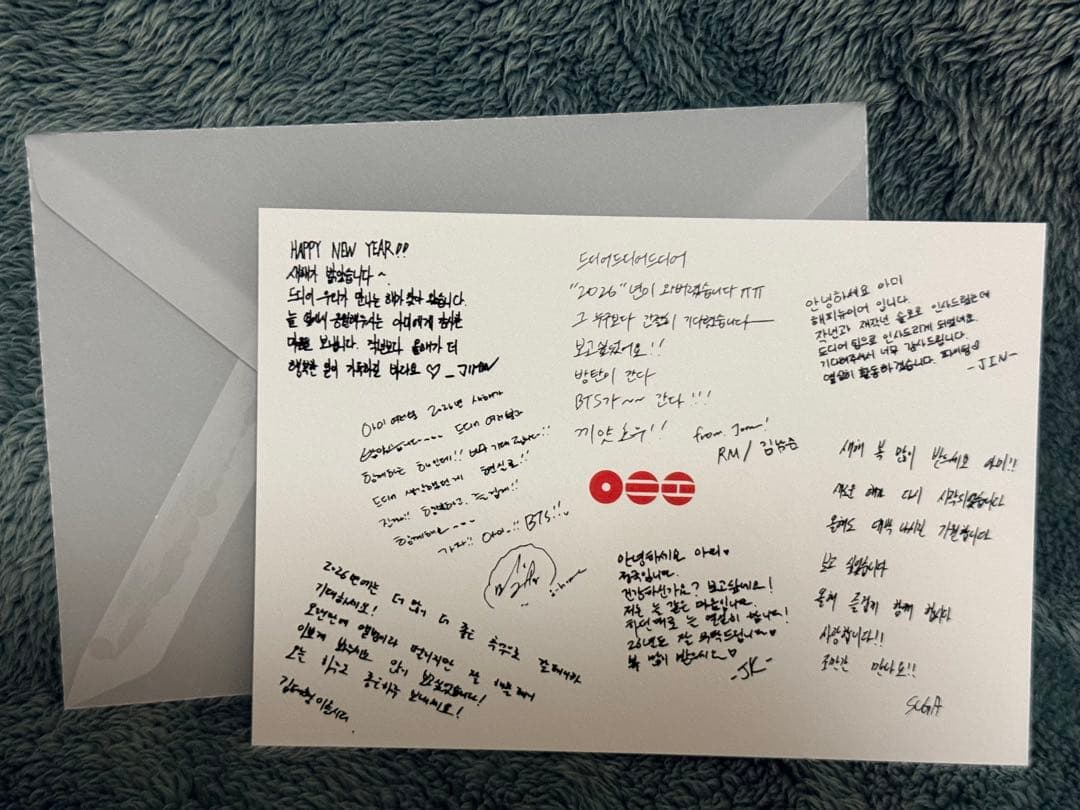 HAPPY NEW YEAR!!
새해가 밝았습니다~.
드디어 우리가 만나는 해가 왔습니다.
늘 응원해주시는 아미에게 감사한
마음을 보냅니다. 작년보다 올해가 더
행복한 일이 가득하길 바라요 ♡ _JIMIN
드디어드디어드디어
"2026"년이 와버렸습니다 ㅠㅠ
그 누구보다 간절히 기다렸습니다
보고싶었어요!!
방탄이 간다
BTS가~~ 간다!!!
끼얏호우!!
from. Joon!
RM / 김남준
안녕하세요 아미
해피뉴이어 입니다.
작년과 재작년 솔로로 인사드렸는데
드디어 팀으로 인사드리게 되었네요.
기다려주셔서 너무 감사드립니다.
열심히 활동하겠습니다. 파이팅♡
-JIN-
아미 여러분 2026년 새해가
밝았습니다~~~~ 드디어 여러분과
함께하는 해인데!! 기대
드디어 생각했던게 현실로!!
행복하고, 즐겁게!!
함께해요~~~~
가자!! 아미!! BTS!!
새해 복 많이 받으세요 아미!!
새로운 해가 다시 시작되었습니다
올해도 대박 나시길 기원합니다
보고 싶었습니다
올해 즐겁게 함께 합시다
사랑합니다!!
조만간 만나요!!
SUGA
안녕하세요 아미♥
정국입니다.
건강하신가요? 보고싶네요!
저는 늘 같은 마음입니다
하던대로 늘 열심히 합니다!
26년도 잘 부탁드립니다♥
복 많이 받으시고♡
-JK-
2026년에는 더 멋지고 더 좋은 추억으로
기대하세요!
오랜만에 앨범이라 떨리지만 잘
이쁘게 봐주시고 많이 보고싶었습니다!
오늘 하루도 좋은하루 보내세요!
김태형